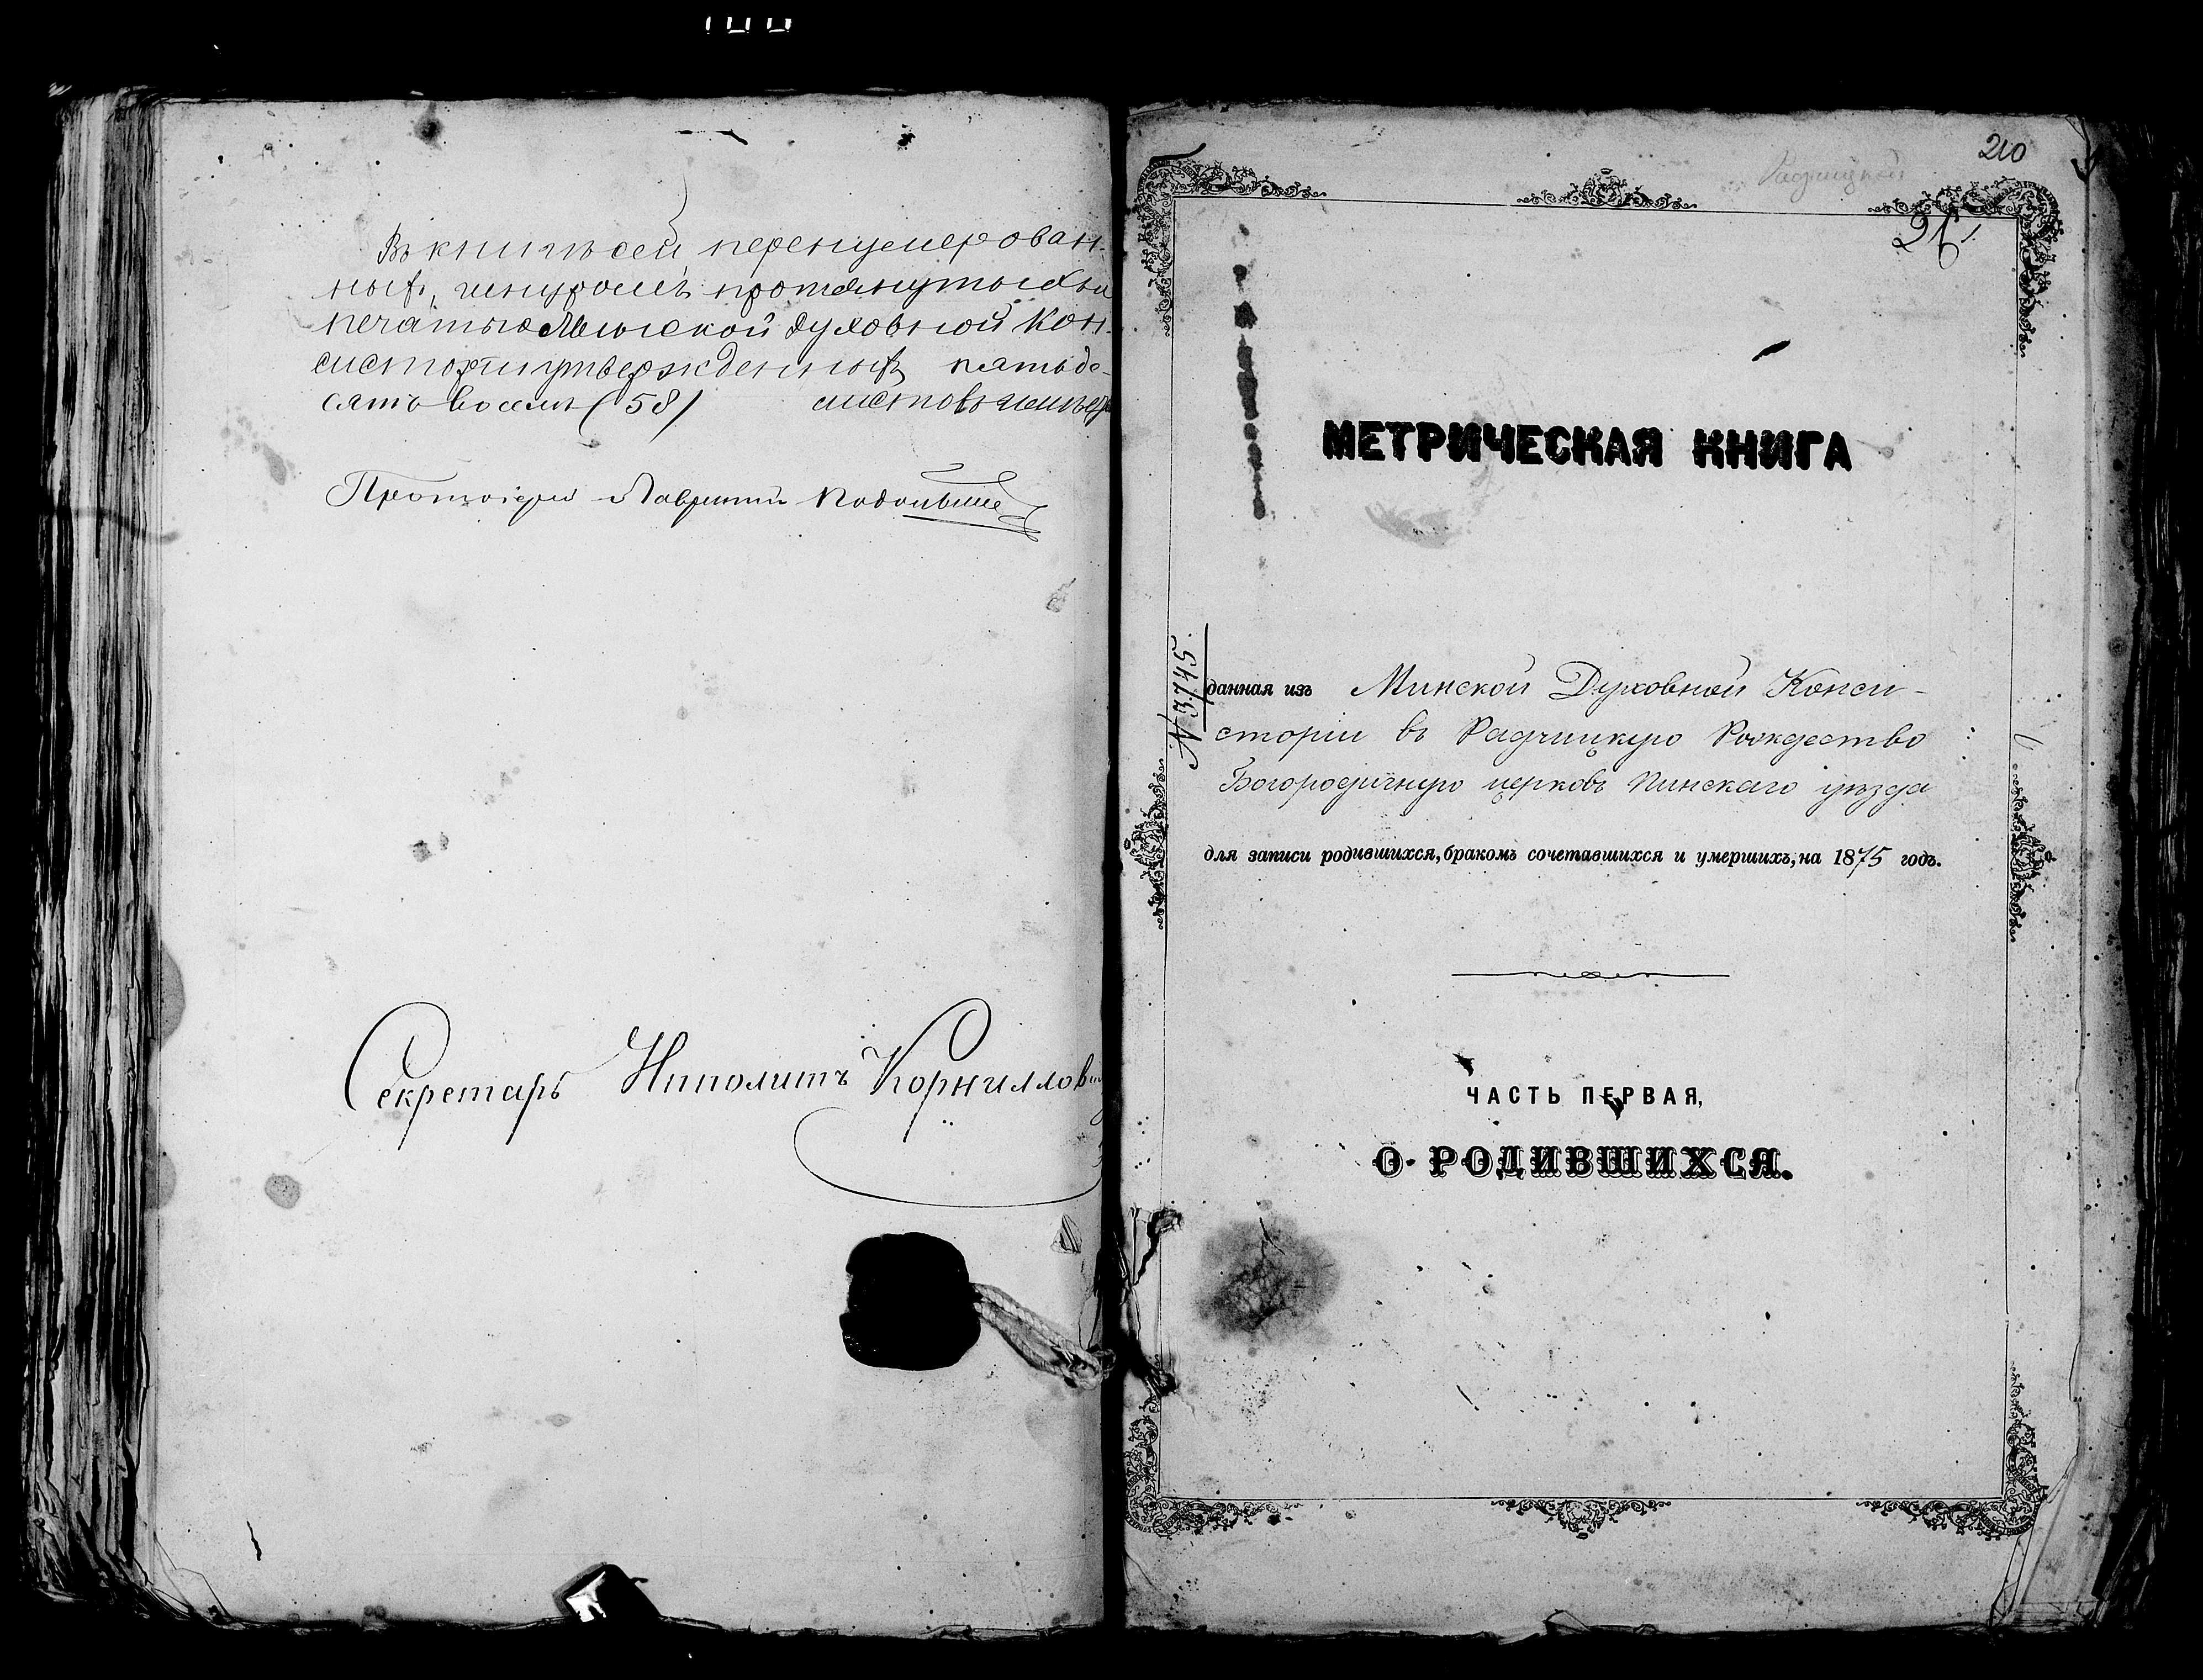 Въ книгѣ сей перенумерован-
ныхъ, шнуромъ протянутыхъ и
печатью Минской Духовной Кон-
систоріи утвержденныхъ пятьде-
сятъ восемь (58) листовъ
Протоіерей Лаврентій
Секретарь Ипполитъ Корниллови
210
Радчицкой
26.
МЕТРИЧЕСКАЯ КНИГА
№ 3745.
данная изъ Минской Духовной Конси-
сторіи въ Радчицкую Рождество
Богородичную церковь Пинскаго уѣзда
для записи родившихся, бракомъ сочетавшихся и умершихъ, на 1875 годъ.
ЧАСТЬ ПЕРВАЯ,
О РОДИВШИХСЯ.